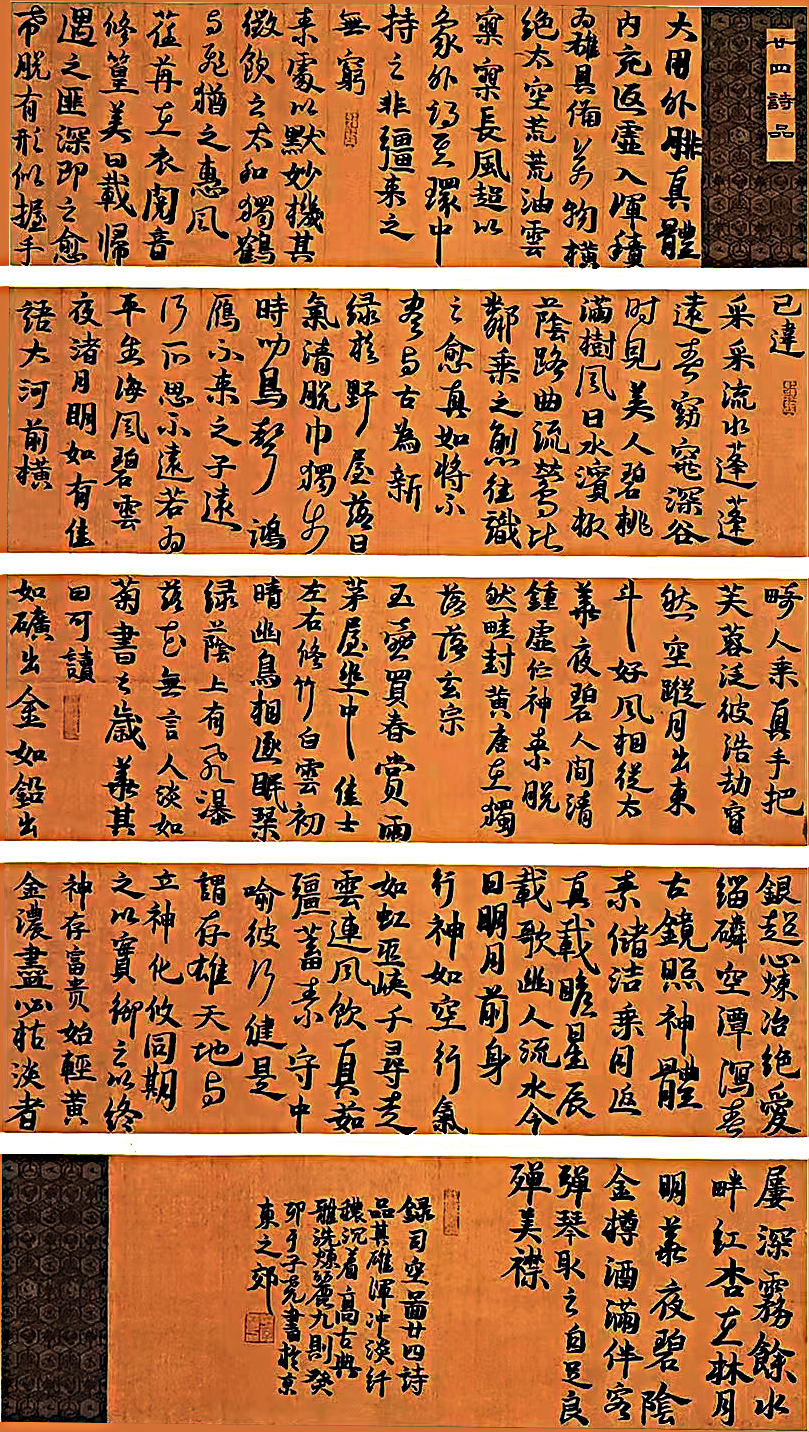 廿四詩品
大用外腓真體
内充返虛入渾積
為雄具備萬物橫
絕太空荒荒油雲
寥寥長風超以
象外得其環中
持之非彊来之
無窮
素處以默妙機其
微飲之太和獨鶴
与飛猶之惠風
荏苒在衣閱音
修篁美曰載歸
遇之匪深即之愈
希脫有形似握手
已違
采采流水蓬蓬
遠春窈窕深谷
時見美人碧桃
滿樹風日水濱柳
蔭路曲流鶯比
鄰乘之愈往識
之愈真如將不
盡与古為新
緑杉野屋落日
氣清脫巾獨步
時聞鳥聲鴻
雁不来之子遠
行所思不遠若為
平生海風碧雲
夜渚月明如有佳
語大河前橫
畸人乘真手把
芙蓉泛彼浩劫窅
然空蹤月出東
斗好風相從太
華夜碧人聞清
鍾虛佇神素脫
然畦封黄唐在獨
落落玄宗
玉壺買春賞雨
茅屋坐中佳士
左右修竹白雲初
晴幽鳥相逐眠琴
緑蔭上有飛瀑
落花無言人淡如
菊書之歲華其
曰可讀
如礦出金如鉛出
銀超心煉冶絕愛
緇磷空潭瀉春
古鏡照神體
素儲洁乘月返
真載瞻星辰
載歌幽人流水今
日明月前身
行神如空行氣
如虹巫峽千尋走
雲連風飲真茹
彊蓄素守中
喻彼行健是
謂存雄天地与
立神化攸同期
之以實御之以終
神存富貴始輕黄
金濃盡必枯淡者
屢深霧餘水
畔紅杏在林月
明華夜碧陰
金樽酒滿伴客
彈琴取之自足良
殫美襟
録司空啚廿四詩
品其雄渾冲淡纤
穠沉着高古典
雅洗煉麗九則癸
卯于子亮書於京
東之郊